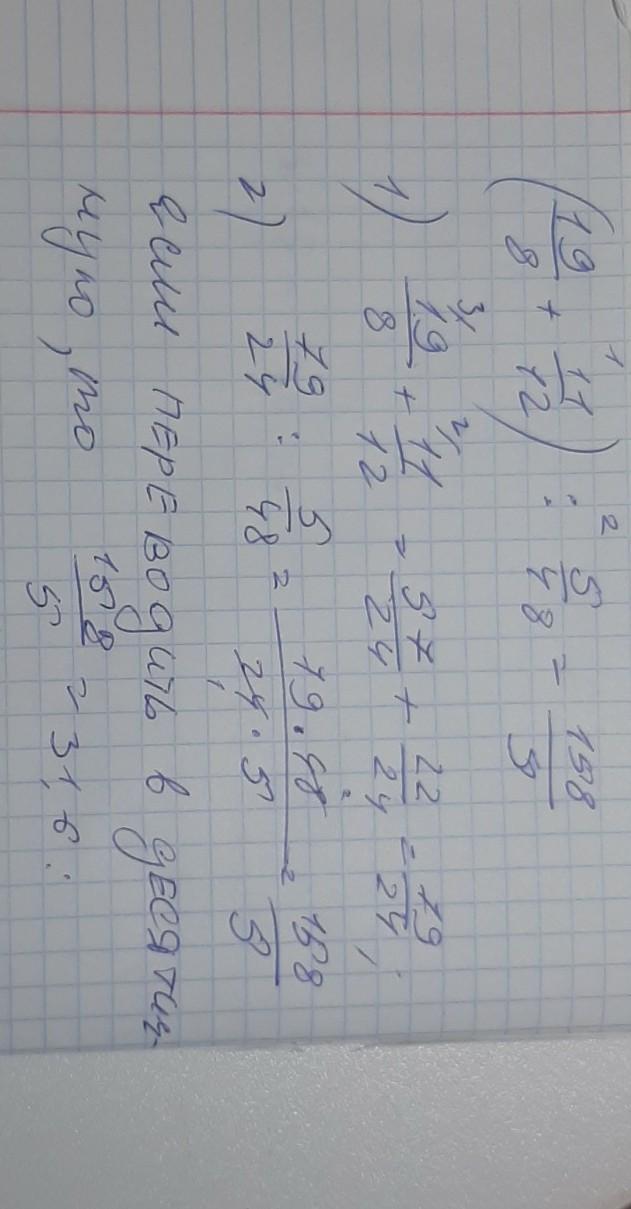 (19/8 + 11/12) : 5/48 = 158/5
1) 19/8 + 11/12 = 57/24 + 22/24 = 79/24;
2) 79/24 : 5/48 = 79·48/24·5 = 158/5
если ПЕРЕВОдить в дЕСЯтич-
ную, то 158/5 = 31,6.